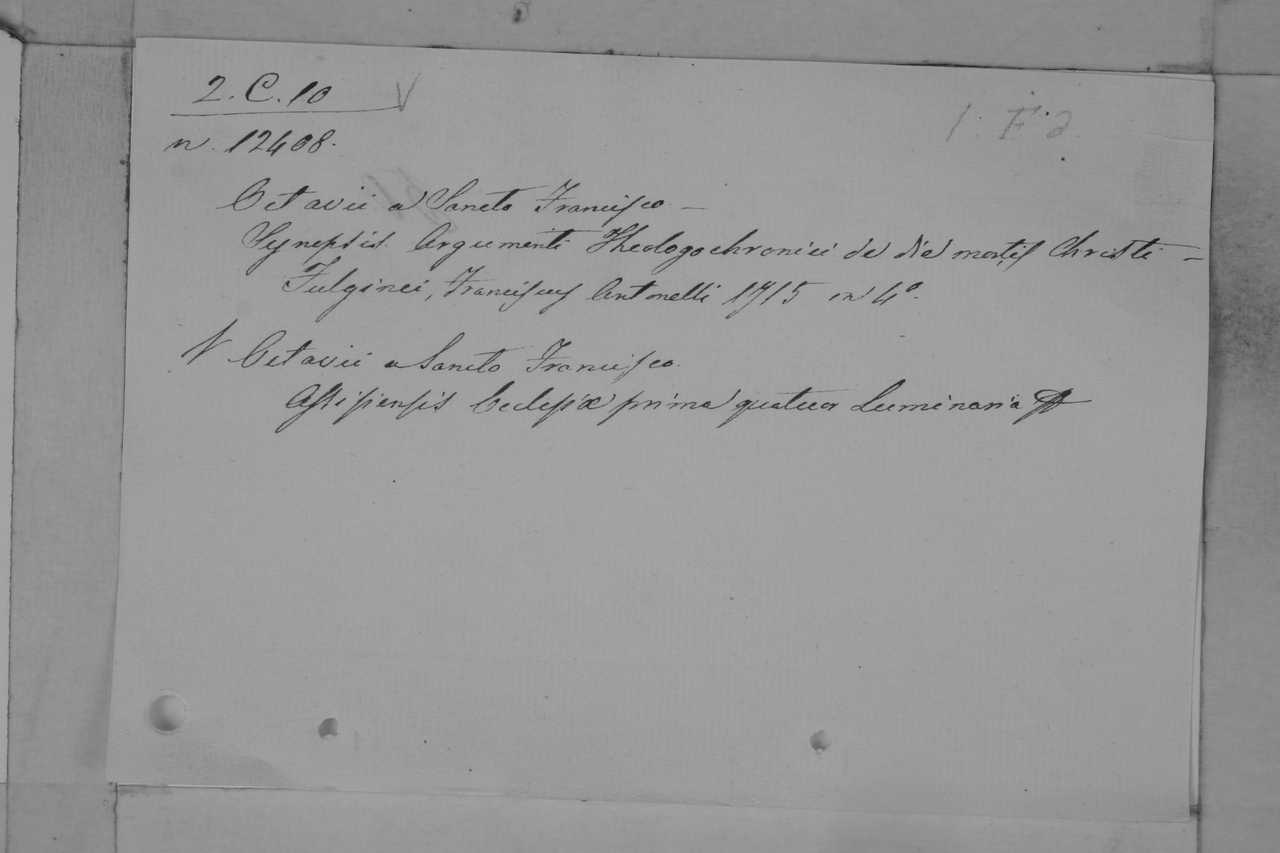 2. C. 10 V
1. F. 2
n. 12408.
Octavii a Sancto Francisco —
Synopsis Argumenti Theologochronici de die mortis Christi —
Fulginei, Franciscus Antonelli 1715 in 4º.
Octavii a Sancto Francisco.
Assisiensis Ecclesiæ prima quatuor Luminaria